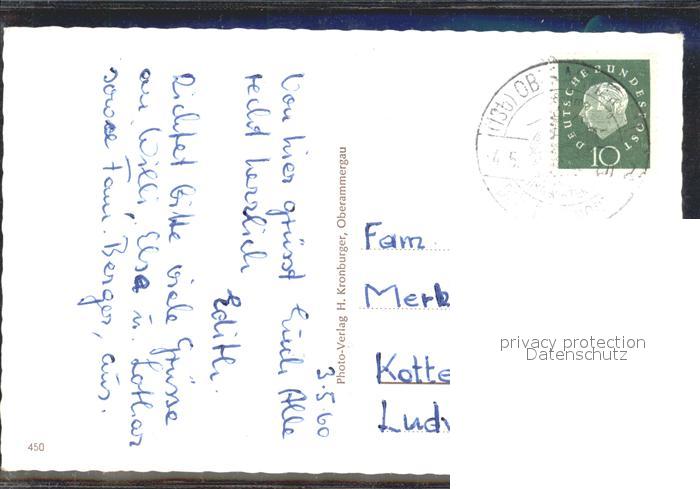 3.5.60
Von hier grüsst Euch Alle
recht herzlich
Edith.
Richtet bitte viele Grüsse
an Willi, Elsa u. Lothar
sowie Fam. Berger, aus.
Photo-Verlag H. Kronburger, Oberammergau
450
(13b) OB
4.5.
DEUTSCHE BUNDESPOST
10
Fam.
Merk
Kotte
Ludw
privacy protection
Datenschutz